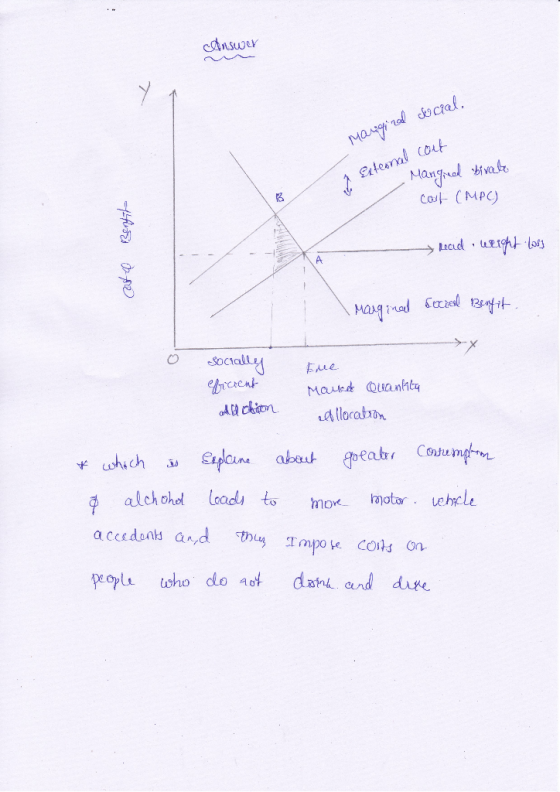 Answer
Y
Marginal Social.
External cost
Marginal
Cost (MPC)
B
Cost & Benefit
A
weight loss
Marginal Social Benefit.
O
X
Socially
efficient
Free
Market Quantity
Allocation
* which is Explaine about greator Consumption
of alchohol loads to more motor. vehicle
accedents and thus Impose costs on
people who do not drink and drive